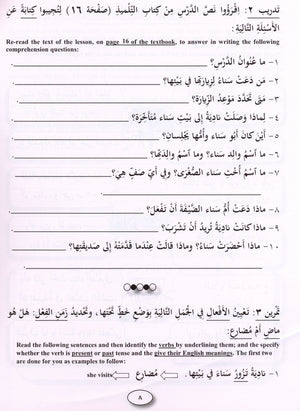 تدريب ٢: اِقْرَؤُوا نَصَّ الدَّرْسِ مِنْ كِتَابِ التِّلْمِيذِ (صَفْحَة ١٦) لِتُجِيبُوا كِتَابَةً عَنِ
الْأَسْئِلَةِ التَّالِيَةِ:
Re-read the text of the lesson, on page 16 of the textbook, to answer in writing the following
comprehension questions:
١- ما عُنْوَانُ الدَّرْسِ؟
٢- مَن دَعَتْ سَناء لِزِيَارَتِها في بَيْتِها؟
٣- مَتَى تَحَدَّدَ مَوْعِدُ الزِّيَارَة؟
٤- لِماذا وَصَلَتْ نَادِيَة إلى بَيْتِ سَناء مُتَأَخِّرَة؟
٥- أَيْنَ كَانَ أَبُو سَناء وأُمُّها يَجْلِسانِ؟
٦- ما اسْمُ والِد سَناء؟ و ما اسْمُ والِدَتِها؟
٧- ما اسْم أُخْتِ سَناء الصُّغْرَى؟ وفي أَيِّ صَفٍّ هِيَ؟
٨- ماذا دَعَتْ أُمُّ سَناء الضَّيْفَةَ أَنْ تَفْعَلَ؟
٩- ماذا كَانَتْ نَادِيَةُ تُرِيدُ أَنْ تَشْرَبَ؟
١٠- ماذا أَحْضَرَتْ سَناءُ؟ وماذا قالَتْ عِنْدَما قَدَّمَتْهُ إلى صَدِيقَتِها؟
تمرين ٣: تَعْيينُ الأَفْعالِ في الجُمَلِ التَّالِيَةِ بِوَضْعِ خَطٍّ تَحْتَها، وتَحْدِيدُ زَمَنِ الفِعْلِ: هَلْ هُو
ماضٍ أَمْ مُضارِع:
Read the following sentences and then identify the verbs by underlining them; and the specify
whether the verb is present or past tense and the give their English meanings. The first two
are done for you as examples to follow:
١- نَادِيَةُ تَزُورُ سَناءَ في بَيْتِها. مُضارِع she visits
٨